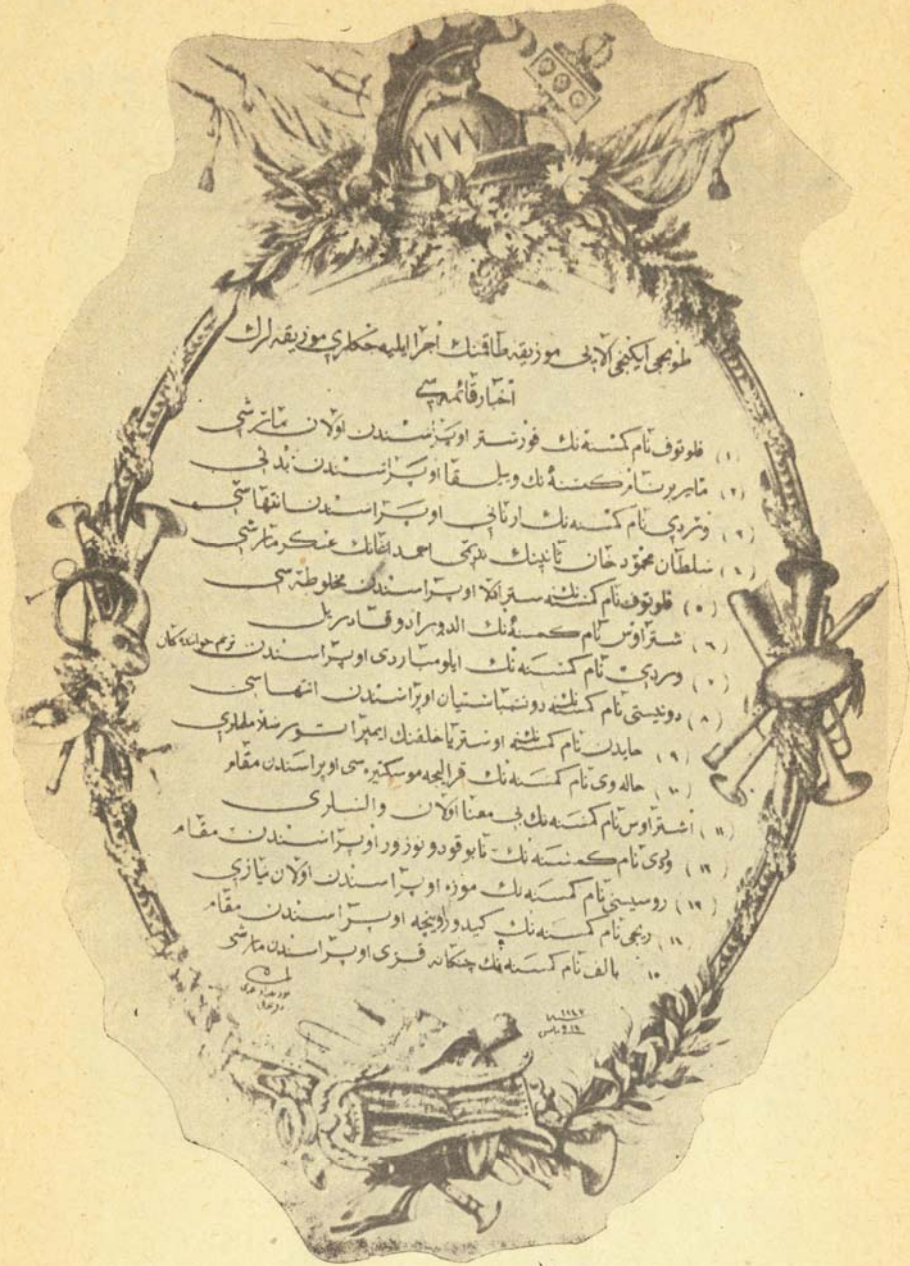 طوبجی ایکنجی آلایی موزیقه طاقمنك اجرا ایلیه جكلری موزیقه لرك
اخبار قائمه سی
(١) فلوتوف نام كمسنه نك فورستر اوپراسندن اولان مارشی
(٢) مایربر نام كمسنه نك ویلقا اوپراسندن بدئی
(٣) وردی نام كمسنه نك ارنانی اوپراسندن انتهاسی
(٤) سلطان محمود خان ثانینك احمد اغانك عسكر مارشی
(٥) فلوتوف نام كمسنه نك ستراللا اوپراسندن مخلوطه سی
(٦) شتراوس نام كمسنه نك الدورادو قادریل
(٧) وردی نام كمسنه نك ایلومباردی اوپراسندن ترنم خوانندكان
(٨) دونیستی نام كمسنه نك دونسباستیان اوپراسندن انتهاسی
(٩) هایدن نام كمسنه نك اوستریا خلقنك ایمپراتور سلاملری
(١٠) هاله وی نام كمسنه نك قرالیچه موسكتیرسی اوپراسندن مقام
(١١) اشتراوس نام كمسنه نك بی معنا اولان والسلری
(١٢) وردی نام كمسنه نك نابوقودونوزور اوپراسندن مقام
(١٣) روسینی نام كمسنه نك موزه اوپراسندن اولان نیازی
(١٤) ریچی نام كمسنه نك كیدو اوپراسندن مقام
١٥ بالف نام كمسنه نك چنكانه قزی اوپراسندن مارشی